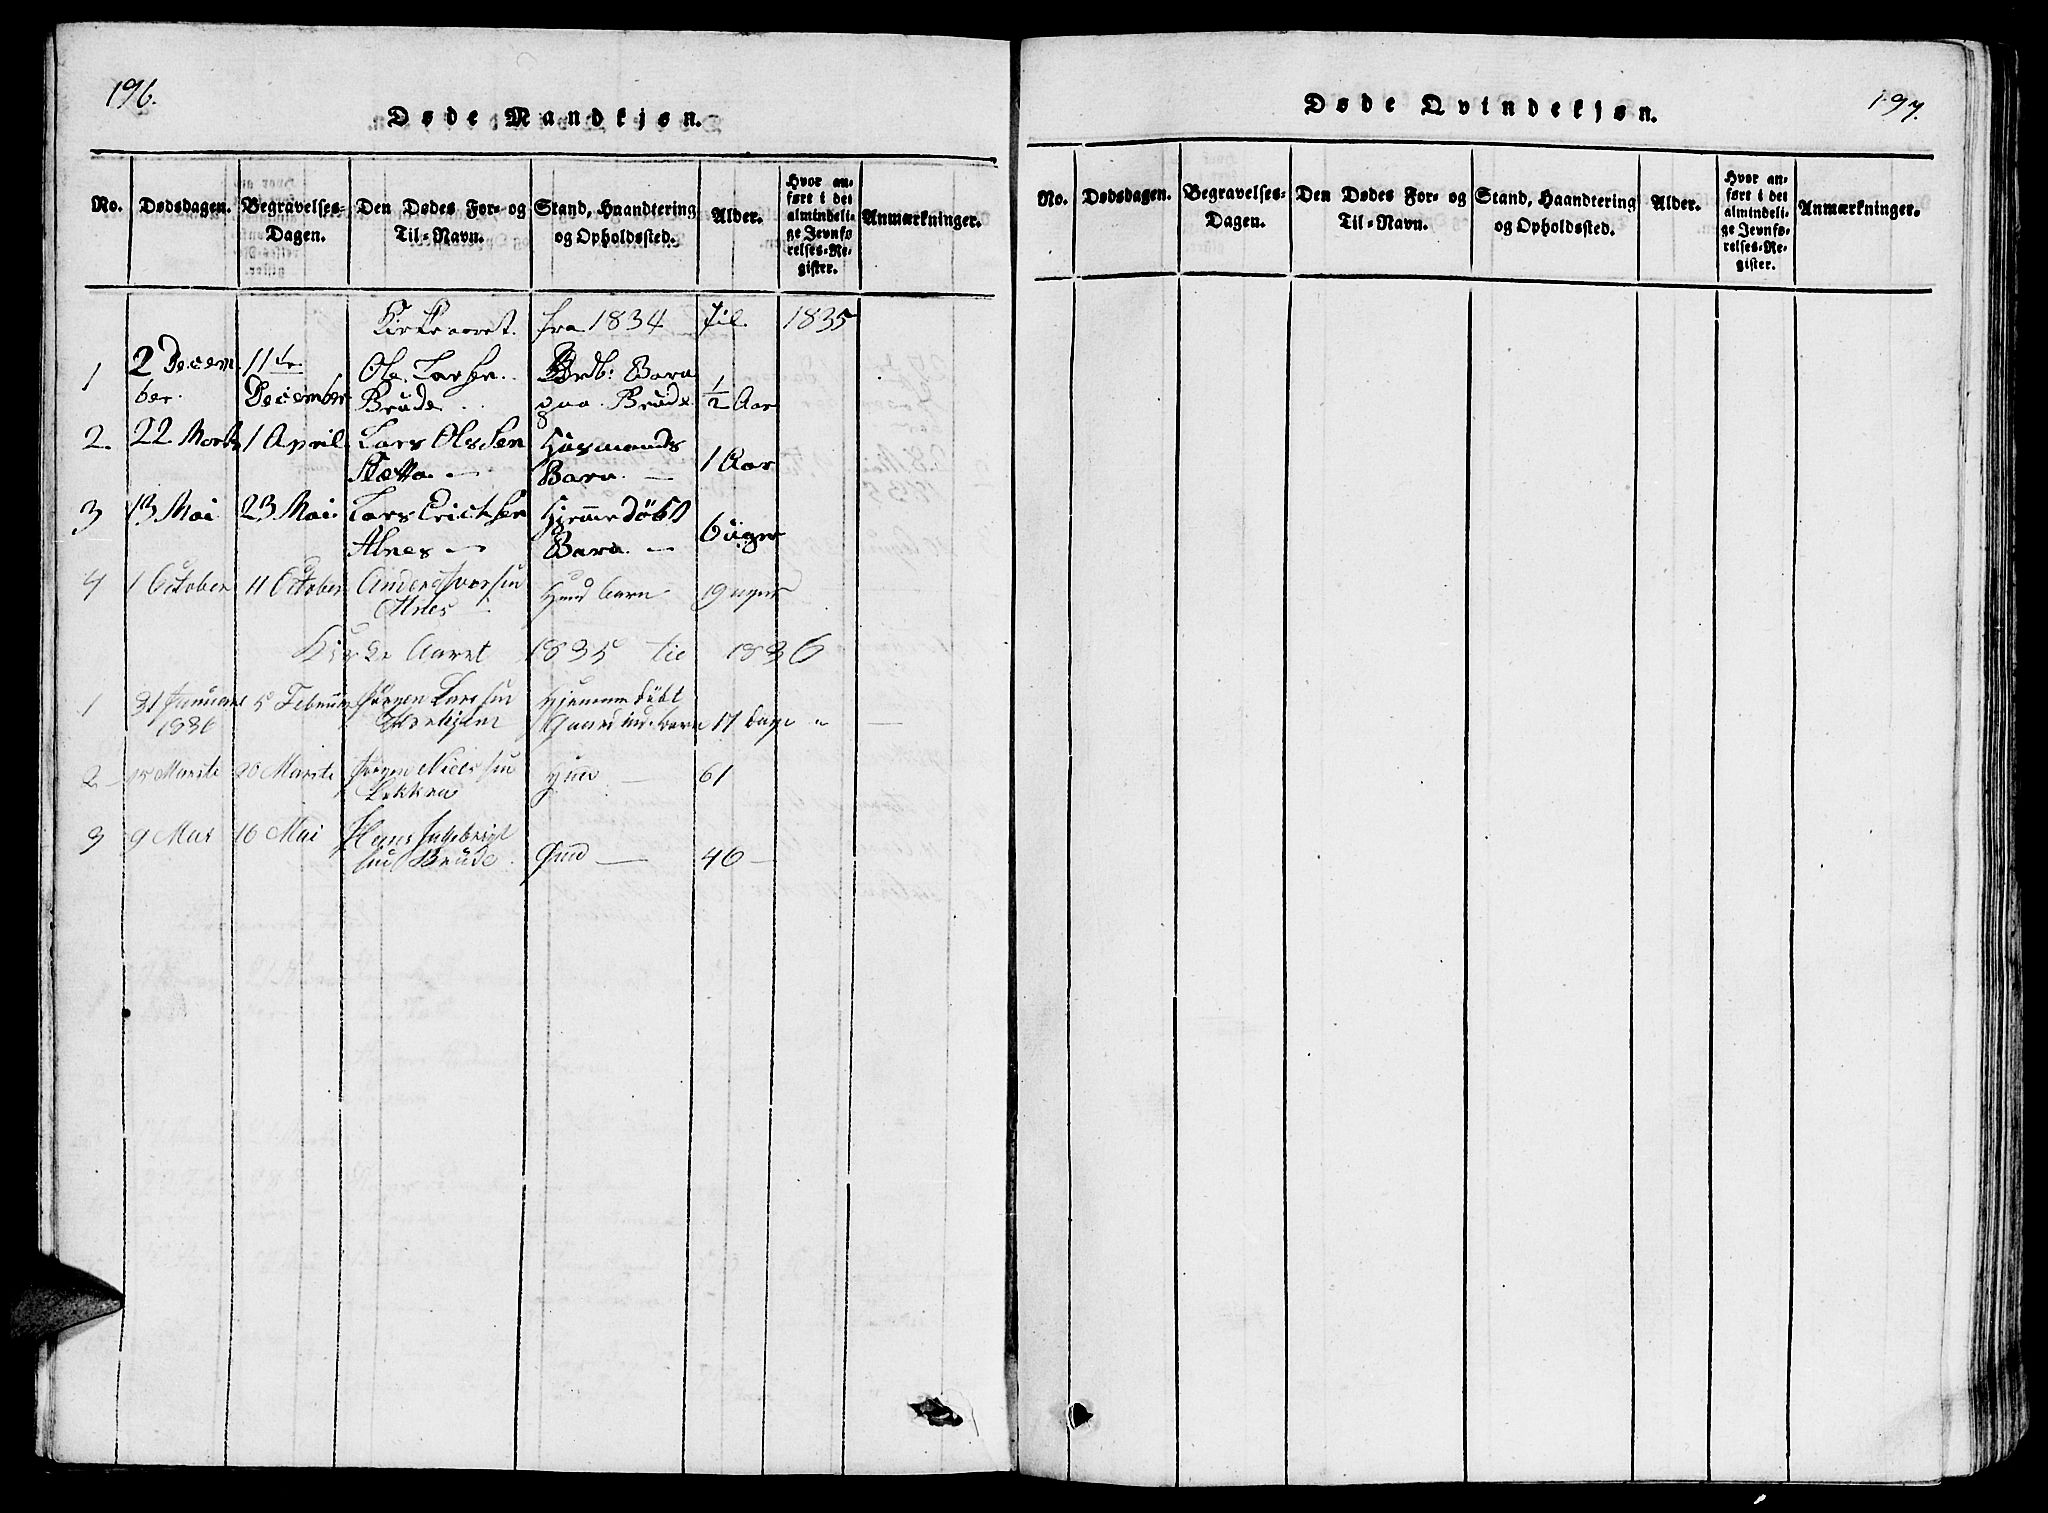 196.
Døde Mandkjøn.
No. Dødsdagen. Begravelses-Dagen. Den Dødes For- og Til-Navn. Stand, Haandtering og Opholdssted. Alder. Hvor anført i det almindelige Jevnførelses-Register. Anmærkninger.
Kirkeaaret fra 1834 til 1835
1 2 Decem 11te Ole Larsen Barn 1/2 Aar
ber. December Brude paa Brude
2. 22 Marts 1 April Lars Olssen Huusmands 1 Aar
Sletta — Barn —
3 13 Mai 23 Mai Lars Erichsen Hjemmedøbt 6 uger
Alnes — Barn —
4 1 October 11 October Anders Iversen Huusd barn 19 uger
Alnes
Kirke Aaret 1835 til 1836
1 31 Januari 5 Februar Jørgen Lars søn Hjemmedøbt
1836 Gaardmds barn 17 dage " —
2 15 Marts 20 Marts Jørgen Niels søn — 61
3 9 Mai 16 Mai Hans Ingebrigt
søn Brude — 46 —
197.
Døde Qvindekjøn.
No. Dødsdagen. Begravelses-Dagen. Den Dødes For- og Til-Navn. Stand, Haandtering og Opholdssted. Alder. Hvor anført i det almindelige Jevnførelses-Register. Anmærkninger.